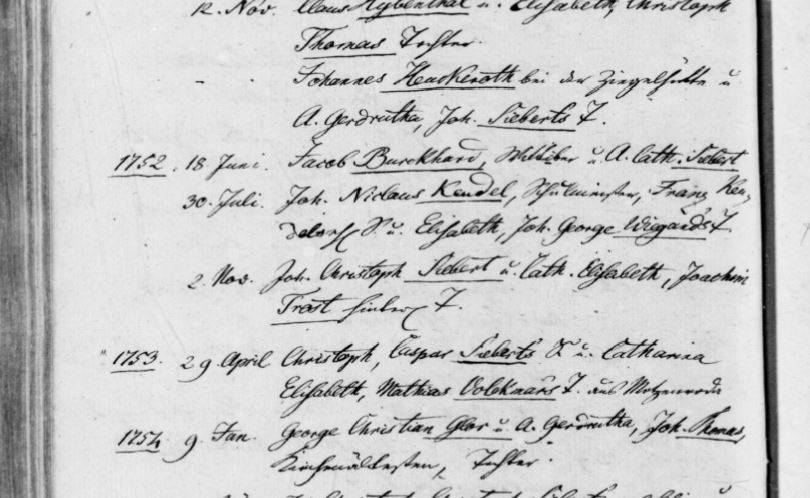 12. Nov. Claus Hybenthal u. Elisabeth, Christoph
Thomas Tochter.
- Johannes Heuckeroth bei der Ziegelhütte u.
A. Gerdrutha, Joh. Sieberts T.
1752. 18 Juni. Jacob Burckhard, Wittiber u. A. Cath. Siebert
30. Juli. Joh. Niclaus Kendel, Schulmeister, Franz Ken-
dels S. u. Elisabeth, Joh. George Wiegands T.
2. Nov. Joh. Christoph Siebert u. Cath. Elisabeth, Joachim
Trost T.
1753. 29 April Christoph, Caspar Sieberts S. u. Catharina
Elisabeth, Mathias Volckmars T. aus Motzenrode
1754. 9. Jan. George Christian Glor u. A. Gerdrutha, Joh. Thomas,
Kirchenältesten, Tochter.